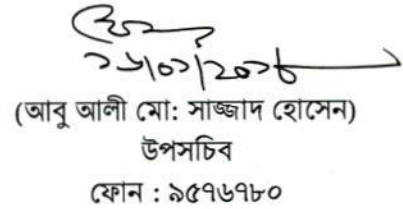 (আবু আলী মো: সাজ্জাদ হোসেন)
উপসচিব
ফোন : ৯৫৭৬৭৮০